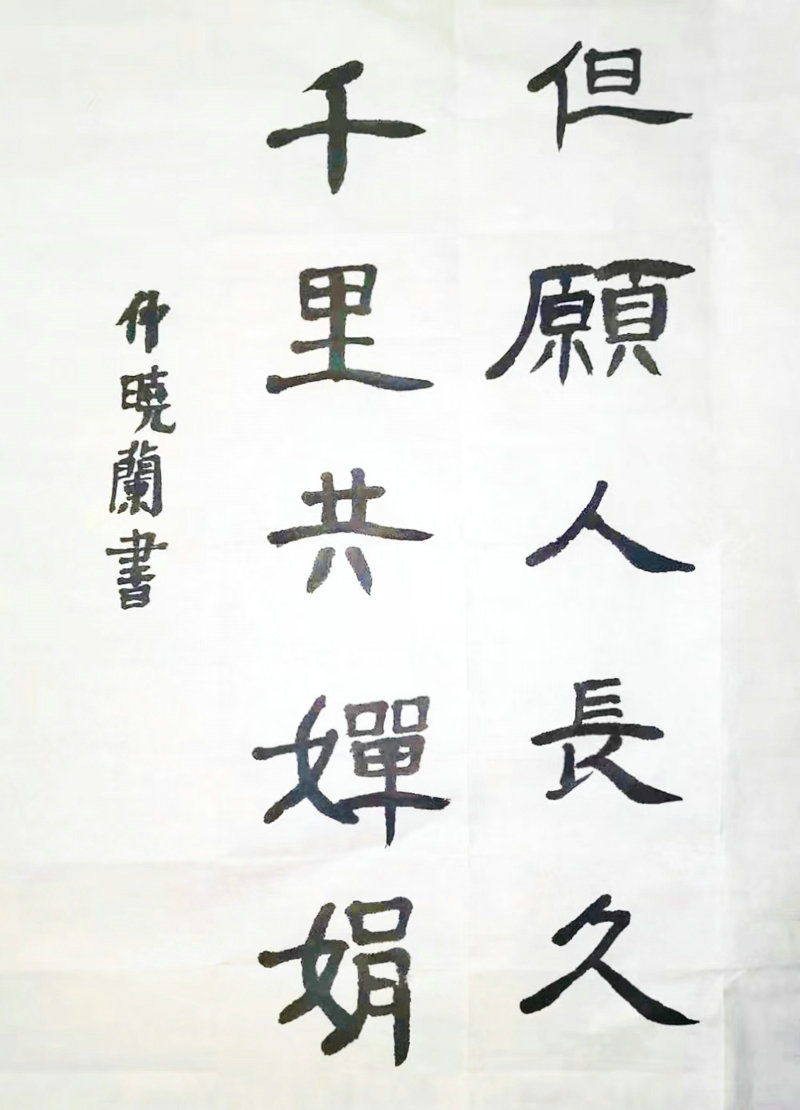 但願人長久
千里共嬋娟
曉蘭書